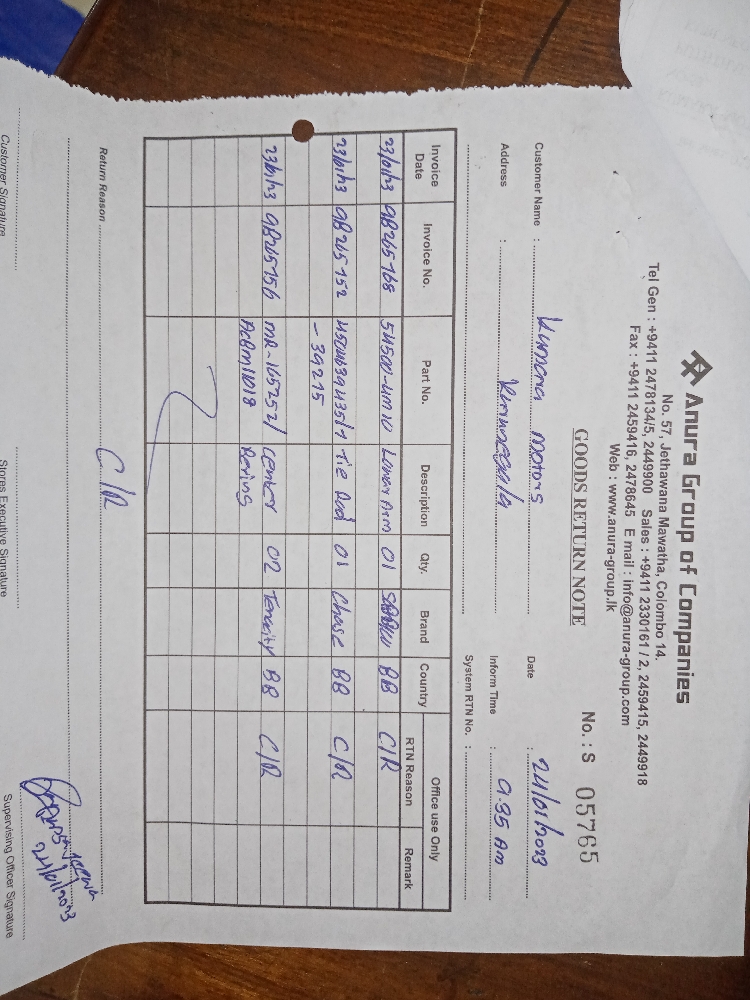 Anura Group of Companies
No. 57, Jethawana Mawatha, Colombo 14.
Tel Gen : +9411 2478134/5, 2449900 Sales : +9411 2330161 / 2, 2459415, 2449918
Fax : +9411 2459416, 2478645 E mail : info@anura-group.com
Web : www.anura-group.lk
GOODS RETURN NOTE
No. : S 05765
Customer Name : Kumara Motors
Date : 24/01/2023
Address : Kurunegala
Inform Time : 9.35 Am
System RTN No. :
Invoice Date Invoice No. Part No. Description Qty. Brand Country Office use Only
RTN Reason Remark
23/01/23 9B265768 54500-4M410 Lower Arm 01 BB C/R
23/01/23 9B265752 Tie Rod 01 Chase BB C/R
- 39215
23/01/23 9B265756 MR-165252/ Center 02 Tenacity BB C/R
ACBM11018 Bering
Return Reason C/R
24/01/2023
Customer Signature Stores Executive Signature Supervising Officer Signature